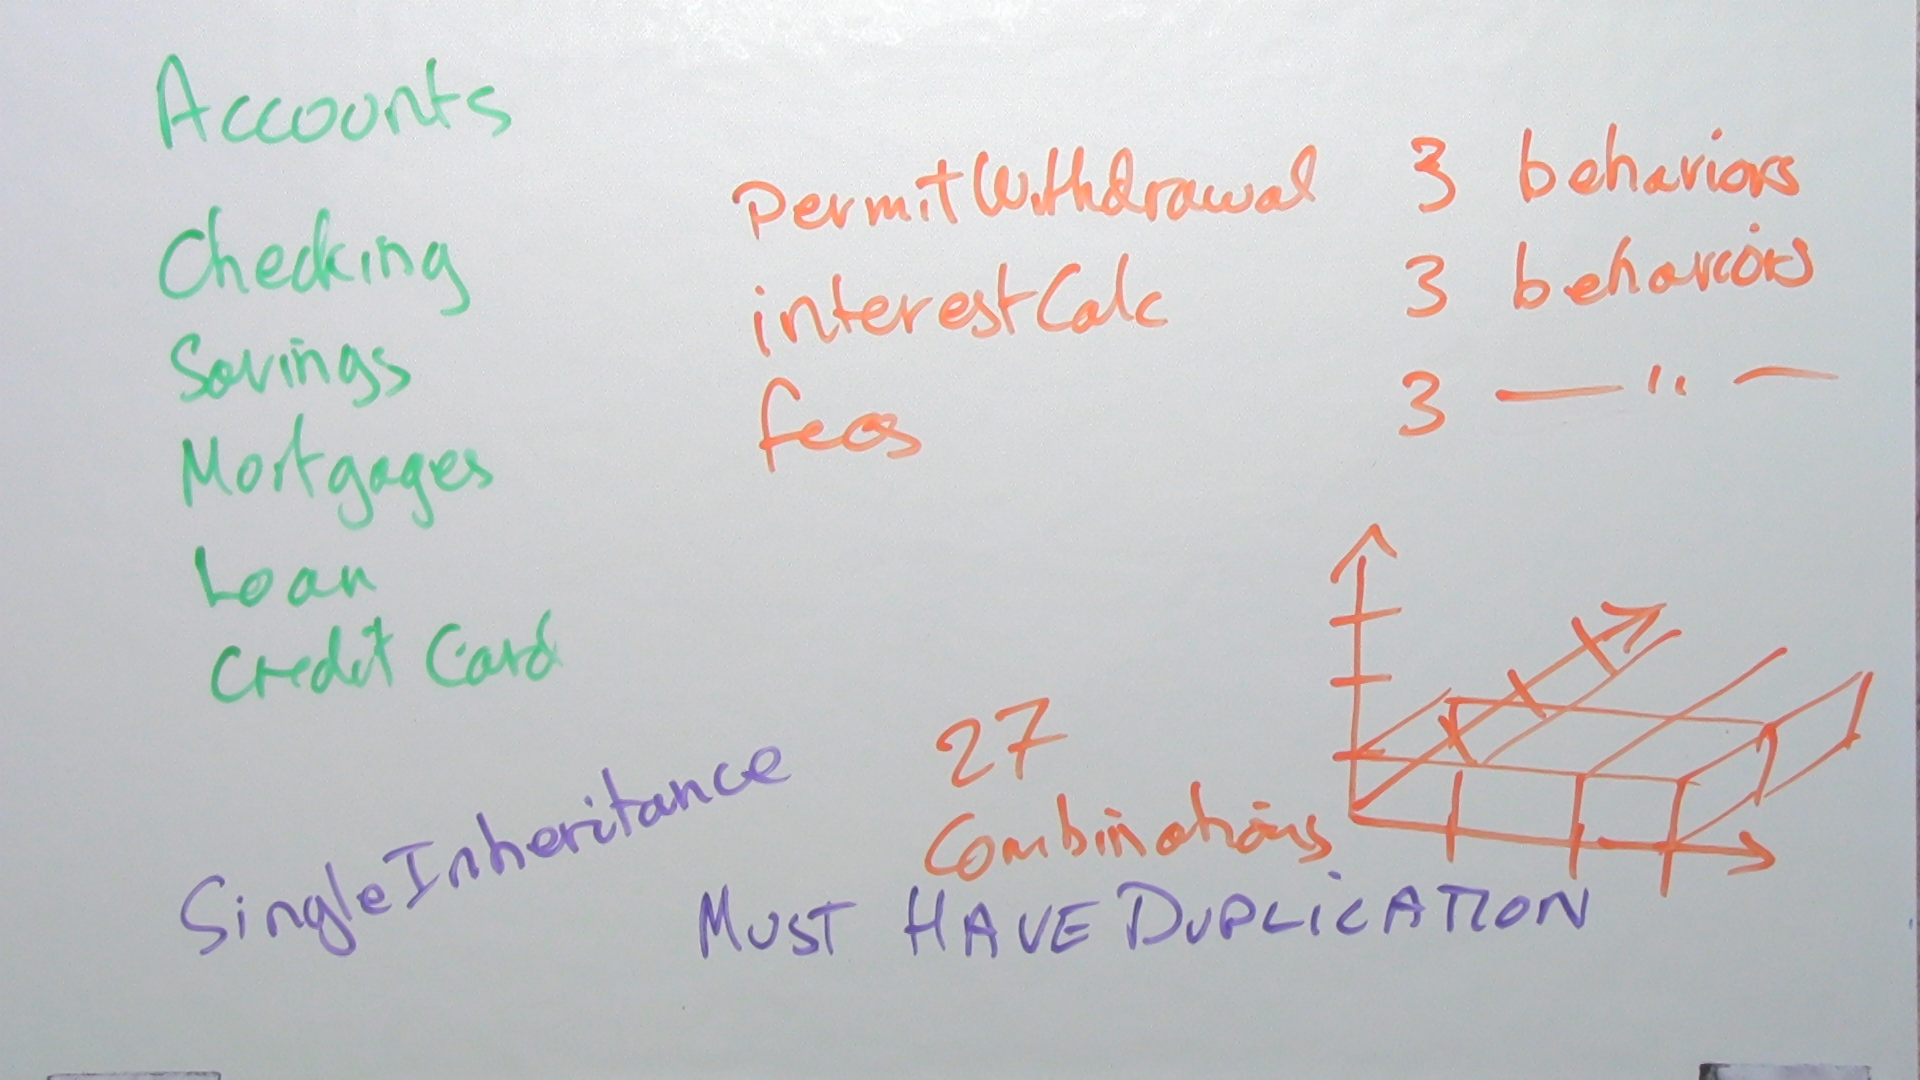 Accounts
Checking
Savings
Mortgages
Loan
Credit Card
permitWithdrawal 3 behaviors
interestCalc 3 behaviors
fees 3 — " —
27
Combinations
SingleInheritance
MUST HAVE DUPLICATION